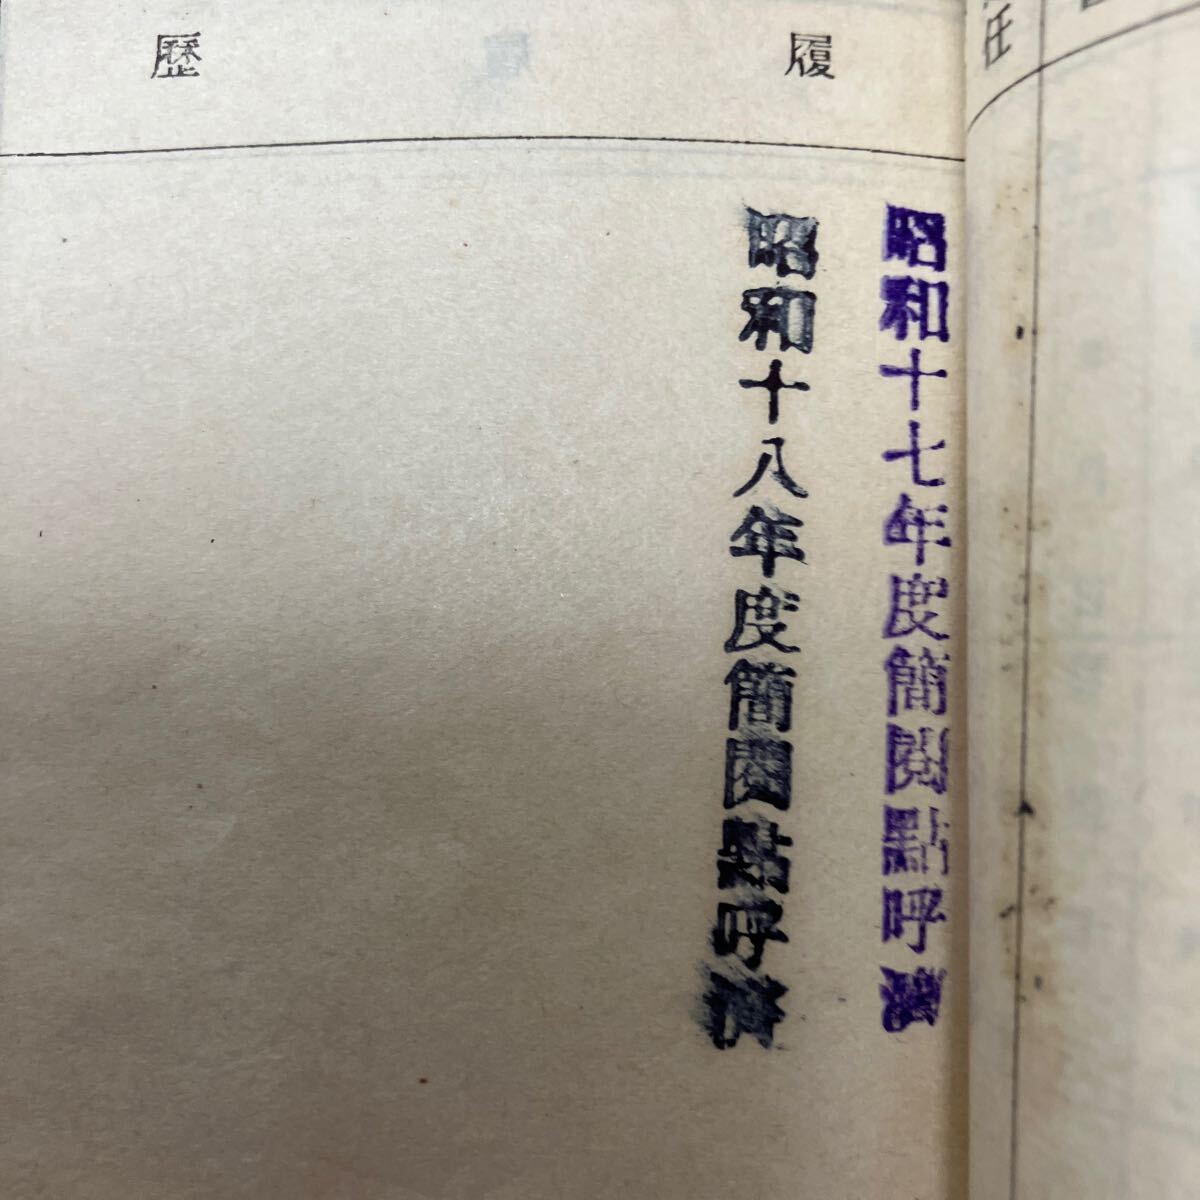 任
履歴
昭和十七年度簡閲點呼濟
昭和十八年度簡閲點呼濟